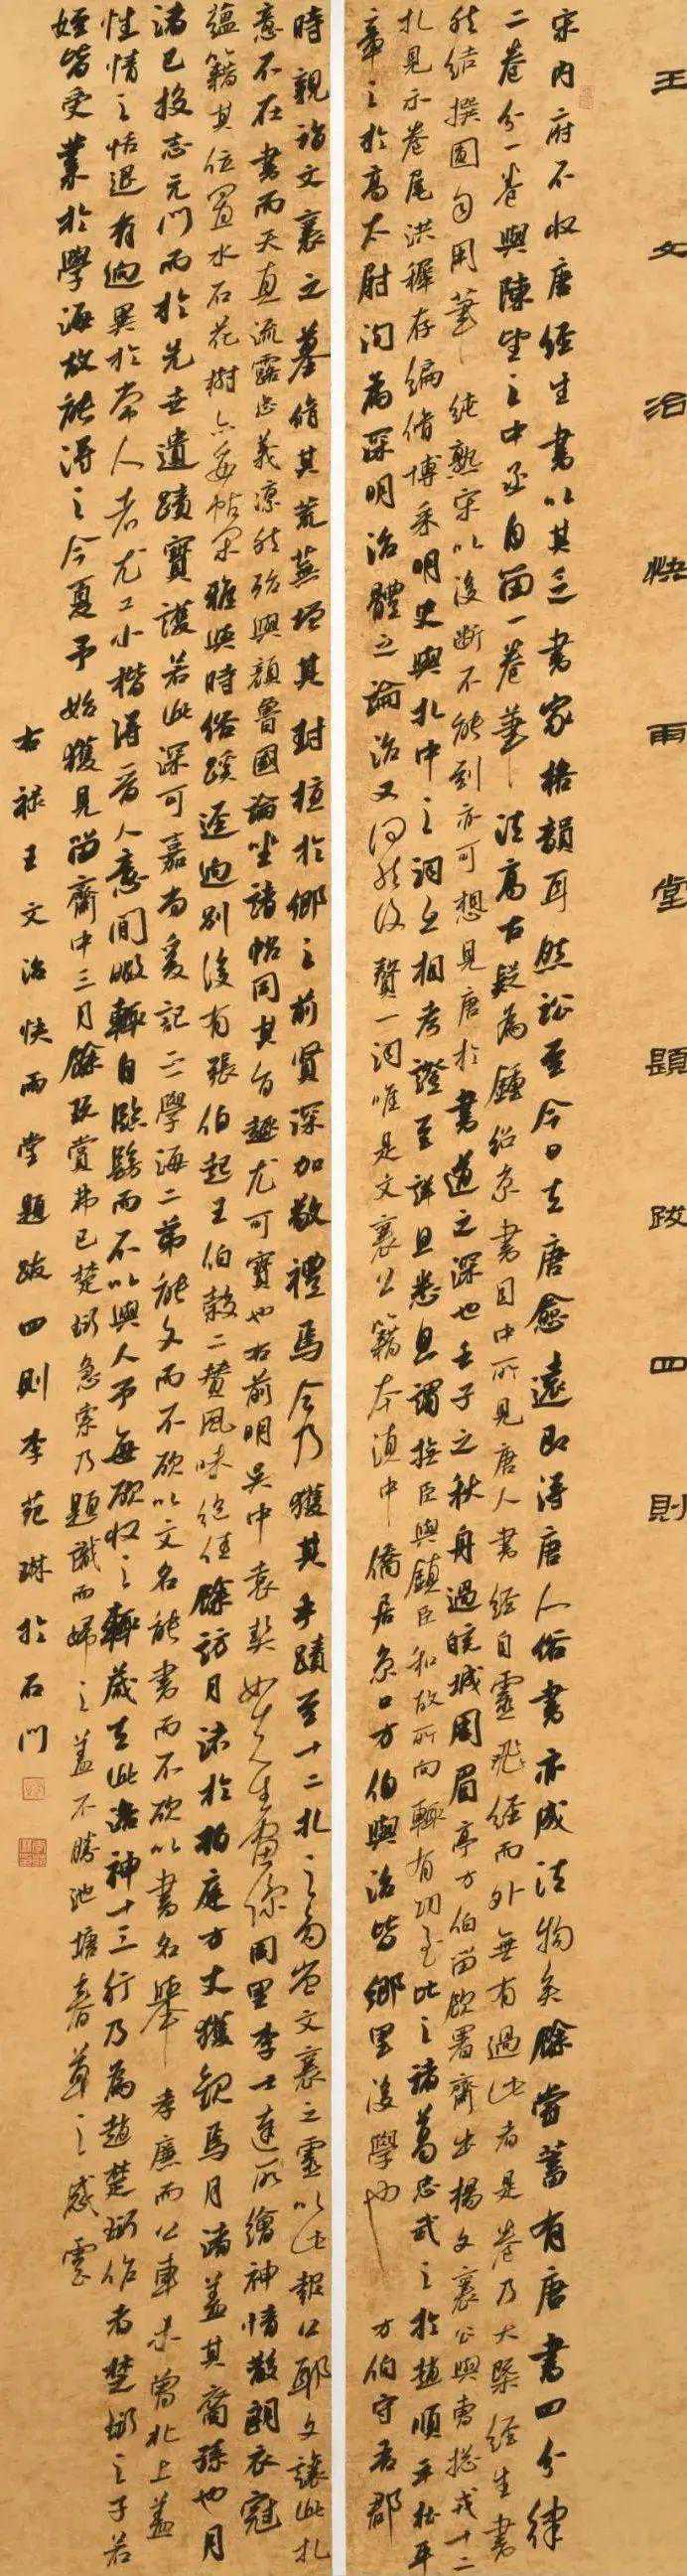 王文治快雨堂題跋四則
宋內府不收唐經生書以其乏書家格韻耳然訟至今日去唐愈遠即得唐人俗書亦成法物矣餘嘗蓄有唐書四分律
二卷分一卷與陳望之中丞自留一卷筆法高古疑為鍾紹京書目中所見唐人書經自靈飛經而外無有過此者是卷乃大槩經生書
然結撰圓勻用筆純熟宋以後斷不能到亦可想見唐於書道之深也壬子之秋舟過皖城周眉亭方伯留飲署齋出楊文襄公與曹總戎十二
札見示卷尾洪穉存編脩博采明史與札中之詞互相考證至詳且悉且謂撫臣與鎮臣和故所向輒有功至比之諸葛忠武之於趙順平杜平
章之於高太尉洵為深明治體之論治又何能復贅一詞唯是文襄公籍本滇中僑居京口方伯與治皆鄉里後學也方伯守吾郡
時親詣文襄之墓脩其荒蕪增其封植於鄉之前賢深加敬禮焉今乃獲其手蹟至十二札之多豈文襄之靈以此報公耶文襄此札
意不在書而天真流露忠義凜然殆與顏魯國論坐諸帖同其旨趣尤可寶也右前明吳中袁與妙先生畫像同里李士達所繪神情散朗衣冠
蘊籍其位置水石花樹亦妥帖不雅與時俗蹊逕迥別後有張伯起王伯穀二贊風味絕佳餘訪月渚於柏庭方丈獲觀焉月渚蓋其裔孫也月
渚已投志元門而於先世遺蹟寶護若此深可嘉尚爰記二學海二弟能文而不欲以文名能書而不欲以書名舉孝廉而公車未曾北上蓋
性情之恬退有迥異於常人者尤工小楷得晉人意閒暇輒自臨鷄而不以與人予每欲收之輒葳去此洛神十三行乃為趙楚珩作者楚珩之子若
姪皆受業於學海故能得之今夏予始獲見留齋中三月餘玩賞弗已楚珩急索乃題識而歸之蓋不勝池塘春草之感云
右祿王文治快雨堂題跋四則李苑琳於石門